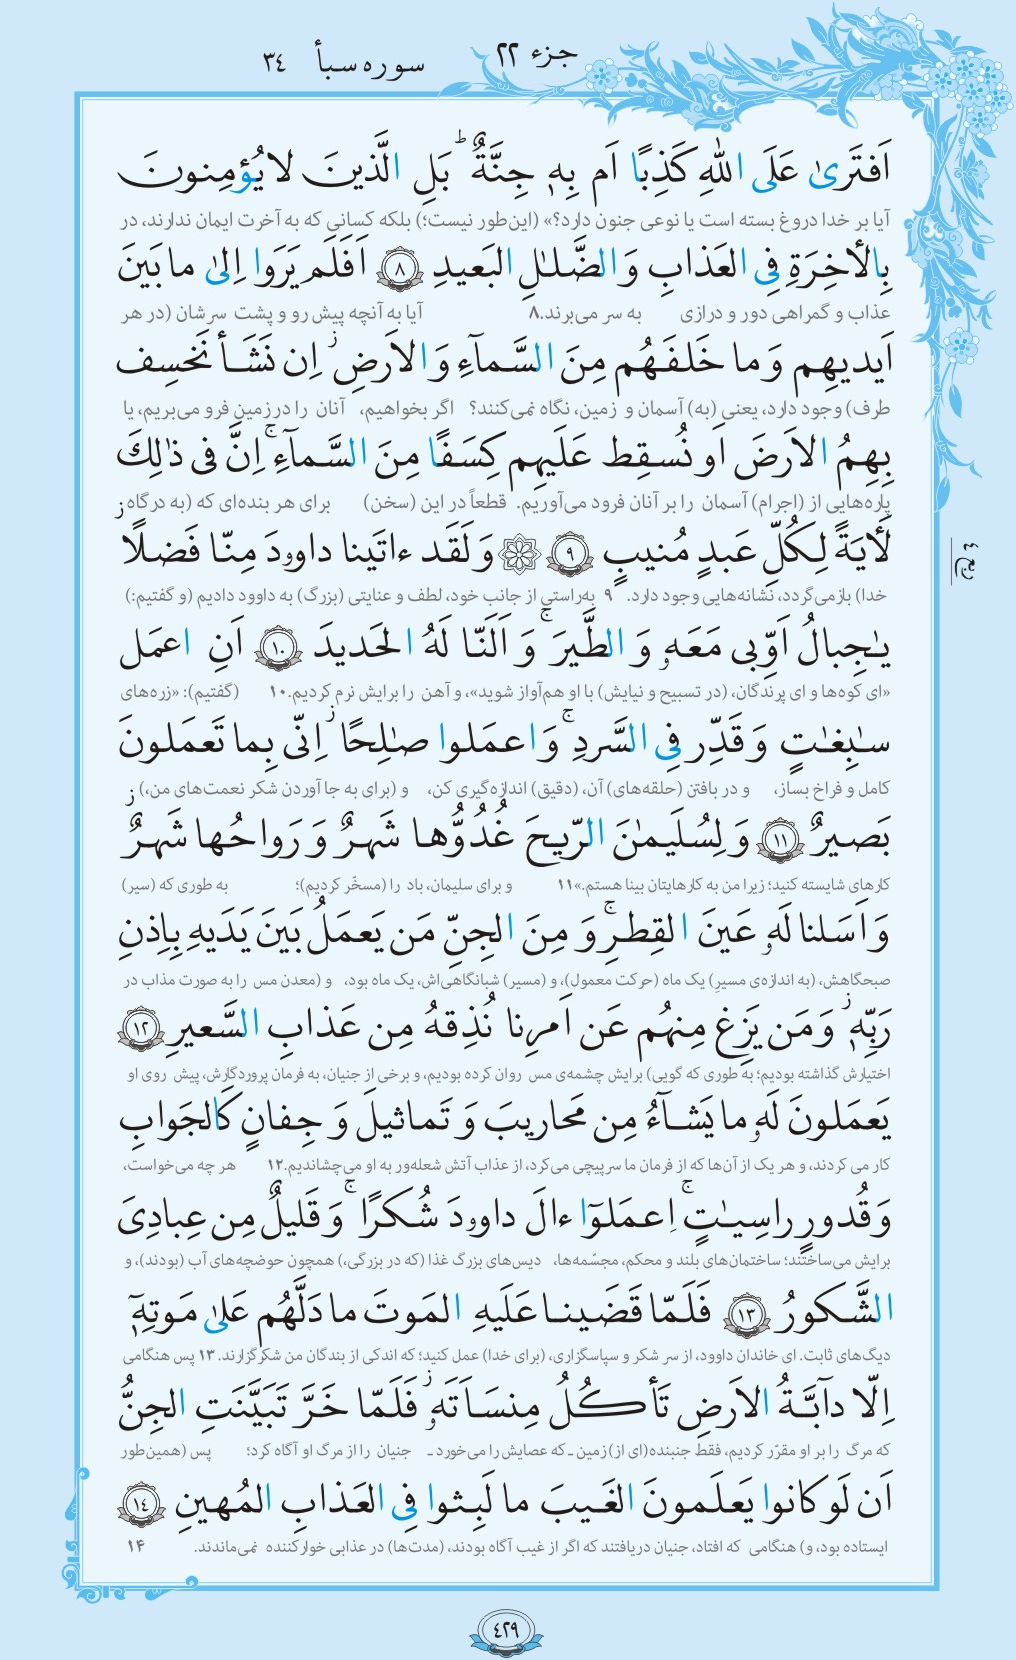 جزء ۲۲
سوره سبأ ۳۴
اَفتَرىٰ عَلَى اللهِ كَذِبًا اَم بِهٖ جِنَّةٌ ۗ بَلِ الَّذينَ لا يُؤمِنونَ
آیا بر خدا دروغ بسته است یا نوعی جنون دارد؟» (این‌طور نیست؛) بلکه کسانی که به آخرت ایمان ندارند، در
بِالأخِرَةِ فِى العَذابِ وَ الضَّلـٰلِ البَعيدِ ﴿٨﴾ اَفَلَم يَرَوا اِلىٰ ما بَينَ
عذاب و گمراهی دور و درازی به سر می‌برند.۸ آیا به آنچه پیش رو و پشت سرشان (در هر
اَيديهِم وَ ما خَلفَهُم مِنَ السَّماۤءِ وَ الاَرضِ ز اِن نَشَأ نَخسِف
طرف) وجود دارد، یعنی (به) آسمان و زمین، نگاه نمی‌کنند؟ اگر بخواهیم، آنان را در زمین فرو می‌بریم، یا
بِهِمُ الاَرضَ اَو نُسقِط عَلَيهِم كِسَفًا مِنَ السَّماۤءِ ج اِنَّ فى ذٰلِكَ
پاره‌هایی از (اجرام) آسمان را بر آنان فرود می‌آوریم. قطعاً در این (سخن) برای هر بنده‌ای که (به درگاه
لَأيَةً لِكُلِّ عَبدٍ مُنيبٍ ﴿٩﴾ ۞ وَ لَقَد ءاتَينا داوۥدَ مِنّا فَضلًا ز
خدا) بازمی‌گردد، نشانه‌هایی وجود دارد. ۹ به‌راستی از جانب خود، لطف و عنایتی (بزرگ) به داوود دادیم (و گفتیم:)
ربع ٤
يـٰجِبالُ اَوِّبى مَعَهٗ وَ الطَّيرَ ج وَ اَلَنّا لَهُ الحَديدَ ﴿١٠﴾ اَنِ اعمَل
«ای کوه‌ها و ای پرندگان، (در تسبیح و نیایش) با او هم‌آواز شوید»، و آهن را برایش نرم کردیم.۱۰ (گفتیم): «زره‌های
سـٰبِغـٰتٍ وَ قَدِّر فِى السَّردِ ج وَ اعمَلوا صـٰلِحًا ز اِنّى بِما تَعمَلونَ
کامل و فراخ بساز، و در بافتن (حلقه‌های) آن، (دقیق) اندازه‌گیری کن، و (برای به جا آوردن شکر نعمت‌های من،)
بَصيرٌ ﴿١١﴾ وَ لِسُلَيمـٰنَ الرّيحَ غُدُوُّها شَهرٌ وَ رَواحُها شَهرٌ ز
کارهای شایسته کنید؛ زیرا من به کارهایتان بینا هستم.»۱۱ و برای سلیمان، باد را (مسخّر کردیم)؛ به طوری که (سیر)
وَ اَسَلنا لَهٗ عَينَ القِطرِ ج وَ مِنَ الجِنِّ مَن يَعمَلُ بَينَ يَدَيهِ بِاِذنِ
صبحگاهش، (به اندازه‌ی مسیرِ) یک ماه (حرکت معمول)، و (مسیر) شبانگاهی‌اش، یک ماه بود، و (معدن مس را به صورت مذاب در
رَبِّهٖ ز وَ مَن يَزِغ مِنهُم عَن اَمرِنا نُذِقهُ مِن عَذابِ السَّعيرِ ﴿١٢﴾
اختیارش گذاشته بودیم؛ به طوری که گویی) برایش چشمه‌ی مس روان کرده بودیم، و برخی از جنیان، به فرمان پروردگارش، پیش روی او
يَعمَلونَ لَهٗ ما يَشاۤءُ مِن مَحاريبَ وَ تَماثيلَ وَ جِفانٍ كَالجَوابِ
کار می کردند، و هر یک از آن‌ها که از فرمان ما سرپیچی می‌کرد، از عذاب آتش شعله‌ور به او می‌چشاندیم.۱۲ هر چه می‌خواست،
وَ قُدورٍ راسِيـٰتٍ ج اِعمَلوۤا ءالَ داوۥدَ شُكرًا ج وَ قَليلٌ مِن عِبادِىَ
برایش می‌ساختند؛ ساختمان‌های بلند و محکم، مجسّمه‌ها، دیس‌های بزرگ غذا (که در بزرگی،) همچون حوضچه‌های آب (بودند)، و
الشَّكورُ ﴿١٣﴾ فَلَمّا قَضَينا عَلَيهِ المَوتَ ما دَلَّهُم عَلىٰ مَوتِهٖۤ
دیگ‌های ثابت. ای خاندان داوود، از سر شکر و سپاسگزاری، (برای خدا) عمل کنید؛ که اندکی از بندگان من شکرگزارند. ۱۳ پس هنگامی
اِلّا داۤبَّةُ الاَرضِ تَأكُلُ مِنسَاَتَهٗ ز فَلَمّا خَرَّ تَبَيَّنَتِ الجِنُّ
که مرگ را بر او مقرّر کردیم، فقط جنبنده(ای از) زمین ـ که عصایش را می‌خورد ـ جنیان را از مرگ او آگاه کرد؛ پس (همین‌طور
اَن لَو كانوا يَعلَمونَ الغَيبَ ما لَبِثوا فِى العَذابِ المُهينِ ﴿١٤﴾
ایستاده بود، و) هنگامی که افتاد، جنیان دریافتند که اگر از غیب آگاه بودند، (مدت‌ها) در عذابی خوارکننده نمی‌ماندند. ۱۴
٤٢٩